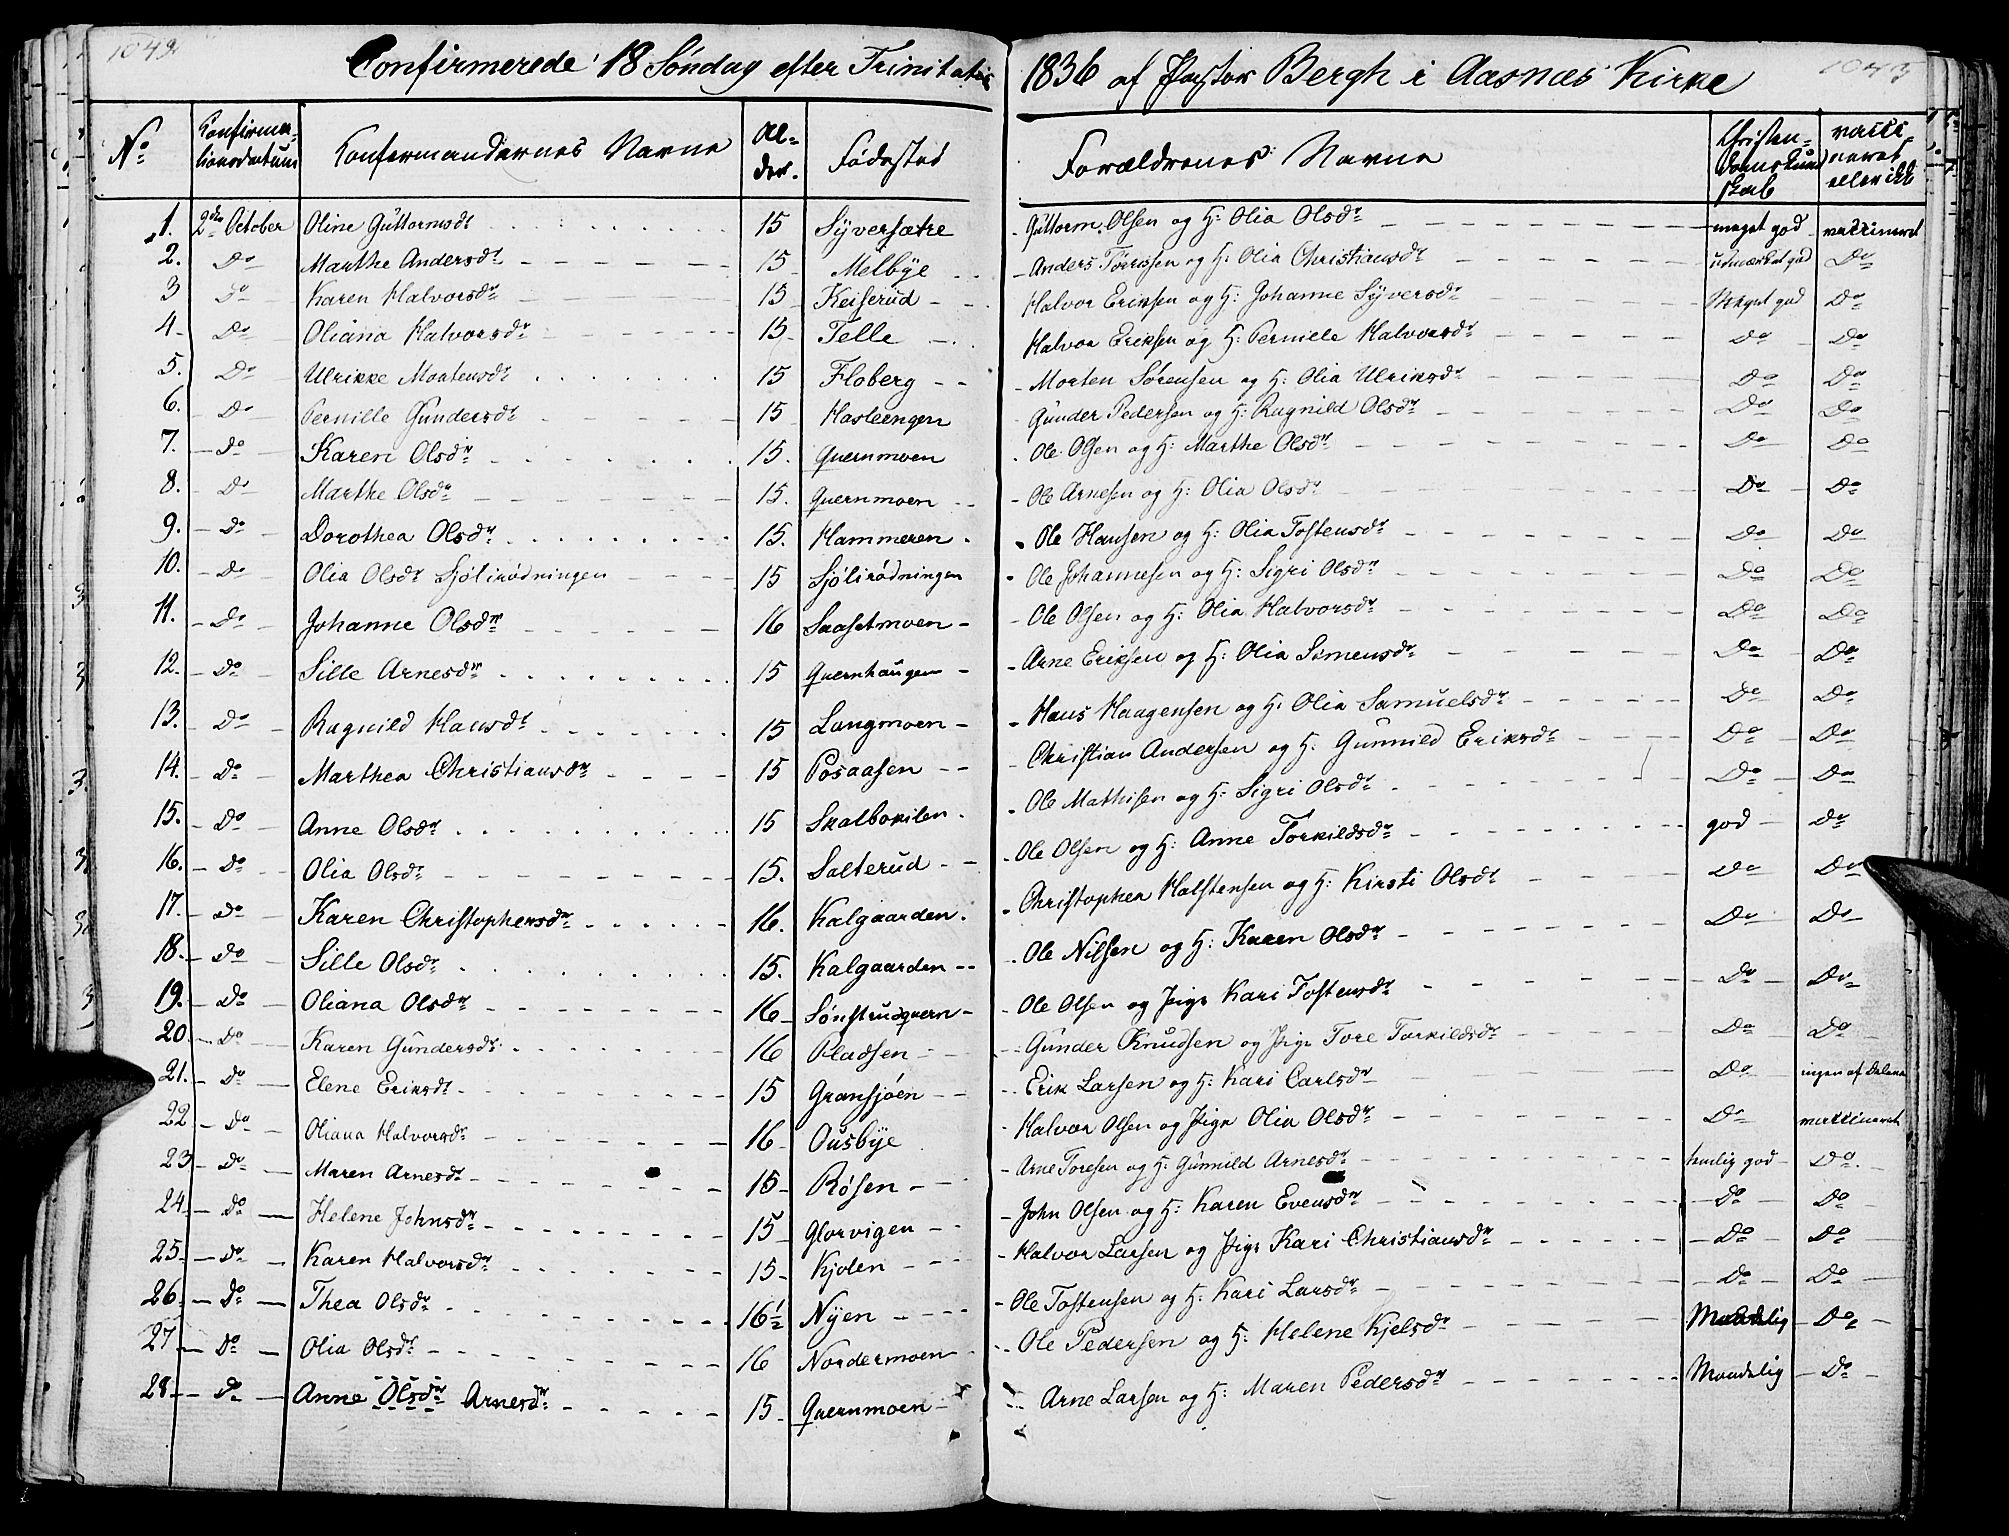 1042
1043
Confirmerede 18 Søndag efter Trinitatis 1836 af Pastor Bergh i Aasnæs Kirke
No | Confirmationsdatum | Konfermandernes Navne | Alder. | Fødested | Forældrenes Navne | Christendomskundskab | vaccineret eller ikke
1. 2den October Oline Guttormsdr 15 Syversætre Guttorm Olsen og H: Olia Olsdr meget god vaccineret
2. Do Marthe Andersdr 15 Melbye Anders Torressen og H: Olia Christiansdr udmærket god Do
3 Do Karen Halvorsdr 15 Keiserud Halvor Eriksen og H: Johanne Syversdr Meget god Do
4 Do Oliana Halvorsdr 15 Telle Halvor Eriksen og H: Pernille Halvorsdr Do Do
5. Do Ulrikke Mortensdr 15 Floberg Morten Sørensen og H: Olia Ulriksdr Do Do
6. Do Pernille Gundersdr 15 Hasleengen Gunder Pedersen og H: Ragnild Olsdr Do Do
7. Do Karen Olsdr 15. Quernmoen Ole Olsen og H: Marthe Olsdr Do Do
8. Do Marthe Olsdr 15. Quernmoen Ole Arnesen og H: Olia Olsdr Do Do
9. Do Dorothea Olsdr 15. Hammeren Ole Hansen og H: Olia Tostensdr Do Do
10. Do Olia Olsdr Sjølirødningen 15 Sjølirødningen Ole Johannesen og H: Sigri Olsdr Do Do
11. Do Johanne Olsdr 16 Saasetmoen Ole Olsen og H: Olia Halvorsdr Do Do
12. Do Sille Arnesdr 15 Quernhaugen Arne Eriksen og H: Olia Simensdr Do Do
13. Do Ragnild Hansdr 15 Langmoen Hans Haagensen og H: Olia Samuelsdr Do Do
14. Do Marthea Christiansdr 15 Posaasen Christian Andersen og H: Gunnild Eriksdr Do Do
15. Do Anne Olsdr 15 Skalbokilen Ole Mathisen og H: Sigri Olsdr Do Do
16. Do Olia Olsdr 15. Salterud Ole Olsen og H: Anne Torkildsdr god Do
17. Do Karen Christophersdr 16. Kalgaarden Christopher Halstensen og H: Kirsti Olsdr Do Do
18. Do Sille Olsdr 15. Kalgaarden Ole Nilsen og H: Karen Olsdr Do Do
19. Do Oliana Olsdr 16 Sønstrudquern Ole Olsen og Pige Kari Tostensdr Do Do
20. Do Karen Gundersdr 16 Pladsen Gunder Knudsen og Pige Tore Torkildsdr Do Do
21. Do Elene Eriksdr 15 Gransjøen Erik Larsen og H: Kari Carlsdr Do ingen af Delene
22 Do Oliana Halvorsdr 16 Ousbye Halvor Olsen og Pige Olia Olsdr Do vaccineret
23 Do Maren Arnesdr 15 Røsen Arne Toresen og H: Gunnild Arnesdr temlig god Do
24. Do Helene Johnsdr 15 Glorvigen John Olsen og H: Karen Evensdr Do Do
25. Do Karen Halvorsdr 15 Kjolen Halvor Larsen og Pige Kari Christiansdr Do Do
26. Do Thea Olsdr 16½ Nyen Ole Tostensen og H: Kari Larsdr Do Do
27 Do Olia Olsdr 16 Nordermoen Ole Pedersen og H: Helene Kjelsdr Maadelig Do
28 Do Anne Olsdr Arnesdr 15 Quernmoen Arne Larsen og H: Maren Pedersdr Maadelig Do